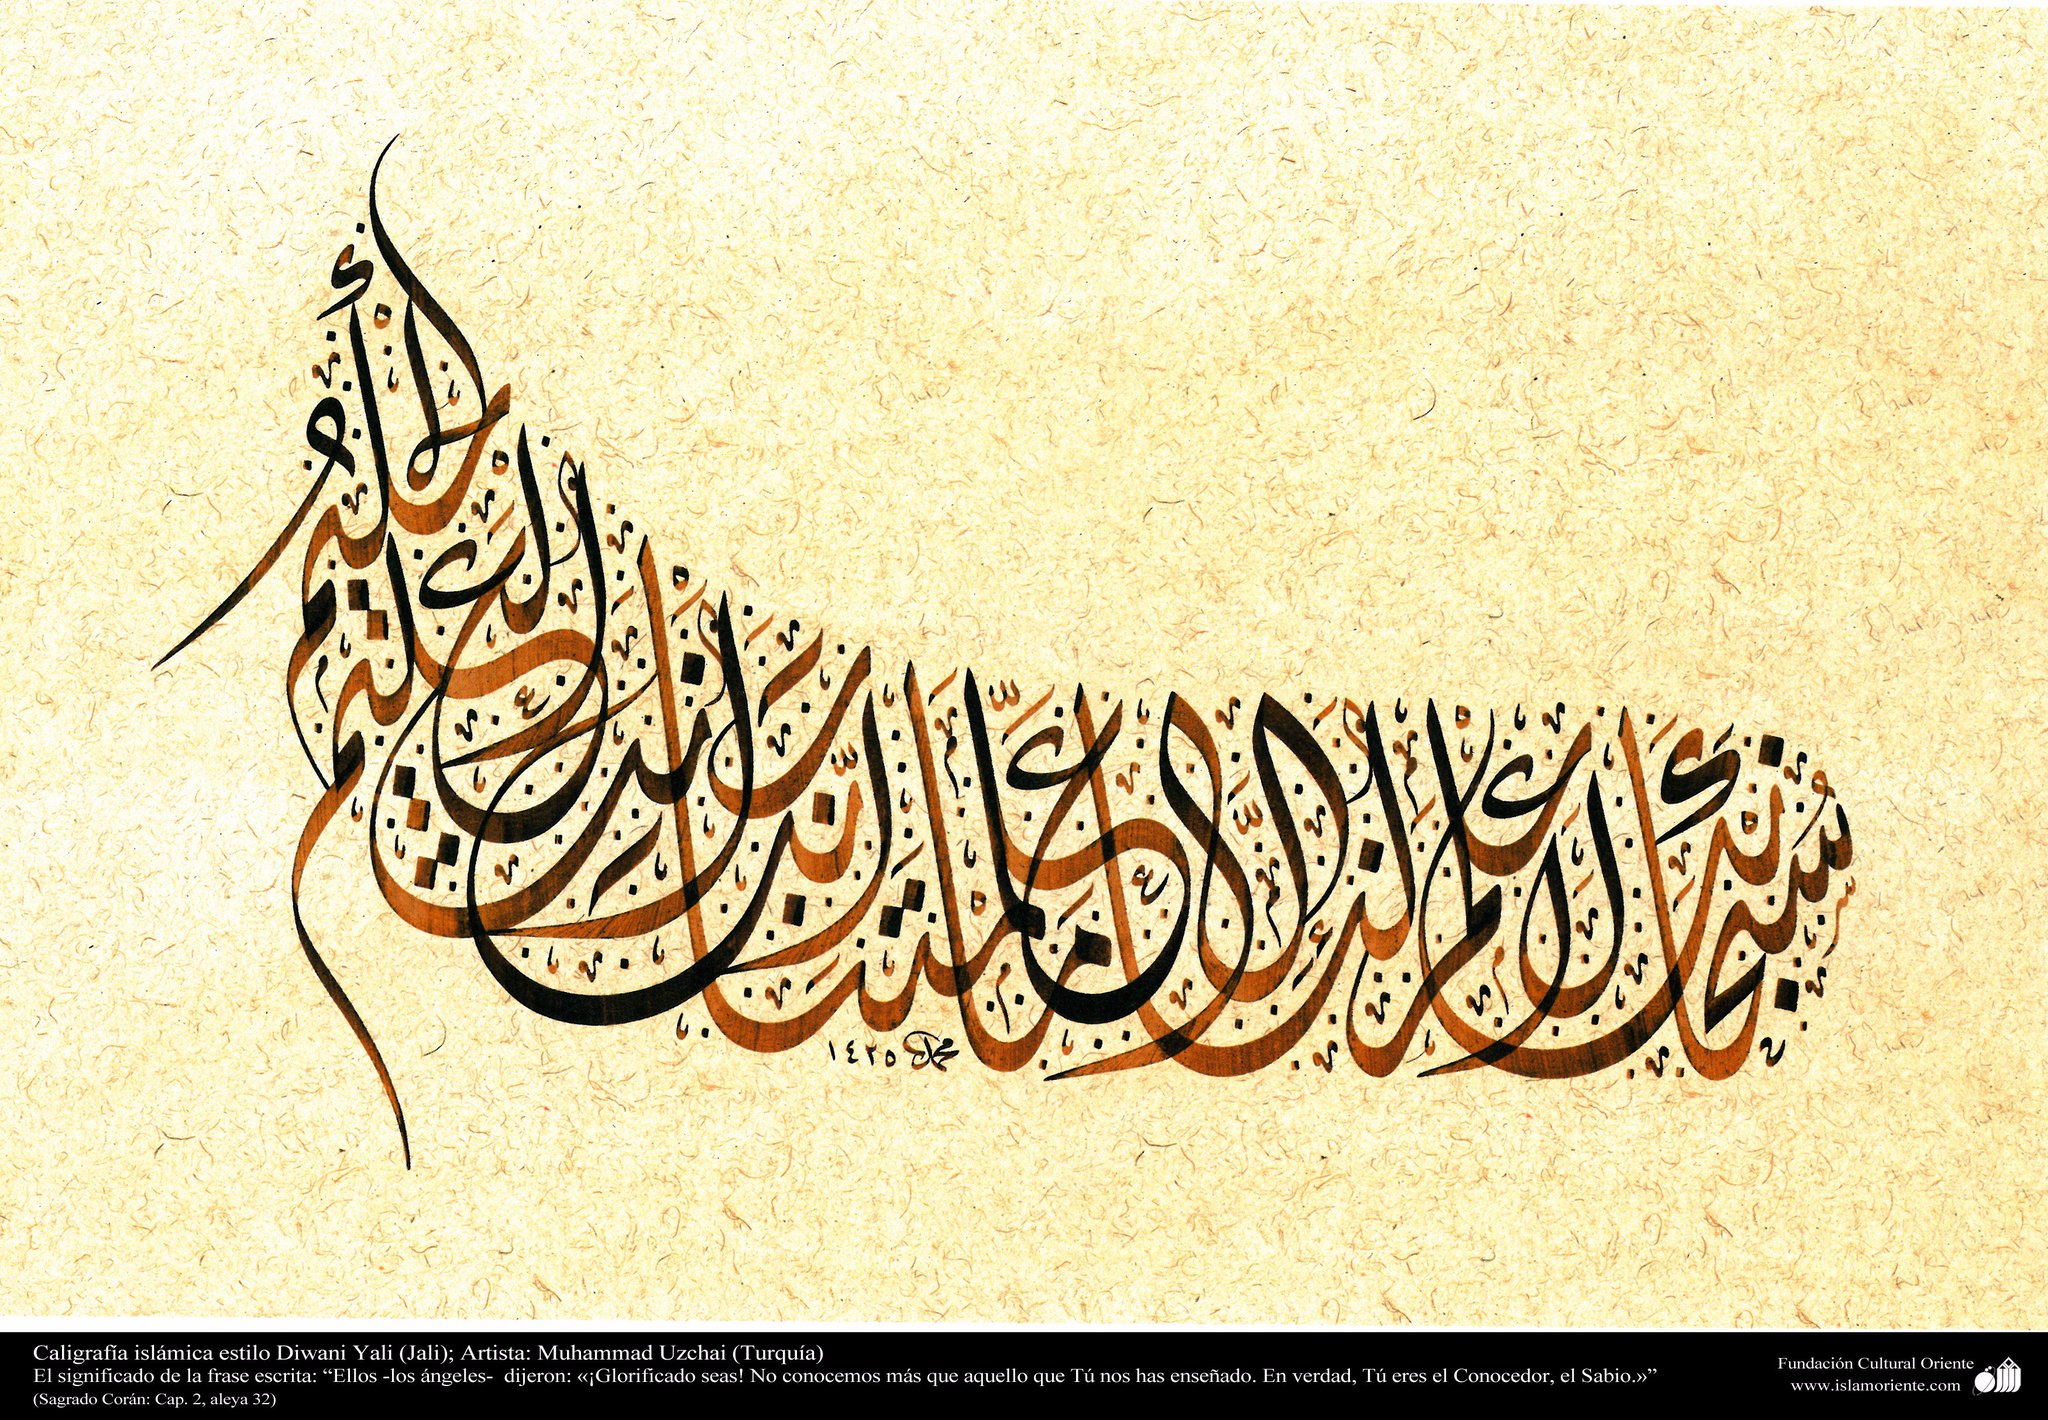 سُبْحَانَكَ لَا عِلْمَ لَنَا إِلَّا مَا عَلَّمْتَنَا إِنَّكَ أَنْتَ الْعَلِيمُ الْحَكِيمُ
محمد ١٤٢٥
Caligrafía islámica estilo Diwani Yali (Jali); Artista: Muhammad Uzchai (Turquía)
El significado de la frase escrita: “Ellos -los ángeles- dijeron: «¡Glorificado seas! No conocemos más que aquello que Tú nos has enseñado. En verdad, Tú eres el Conocedor, el Sabio.»”
(Sagrado Corán: Cap. 2, aleya 32)
Fundación Cultural Oriente
www.islamoriente.com